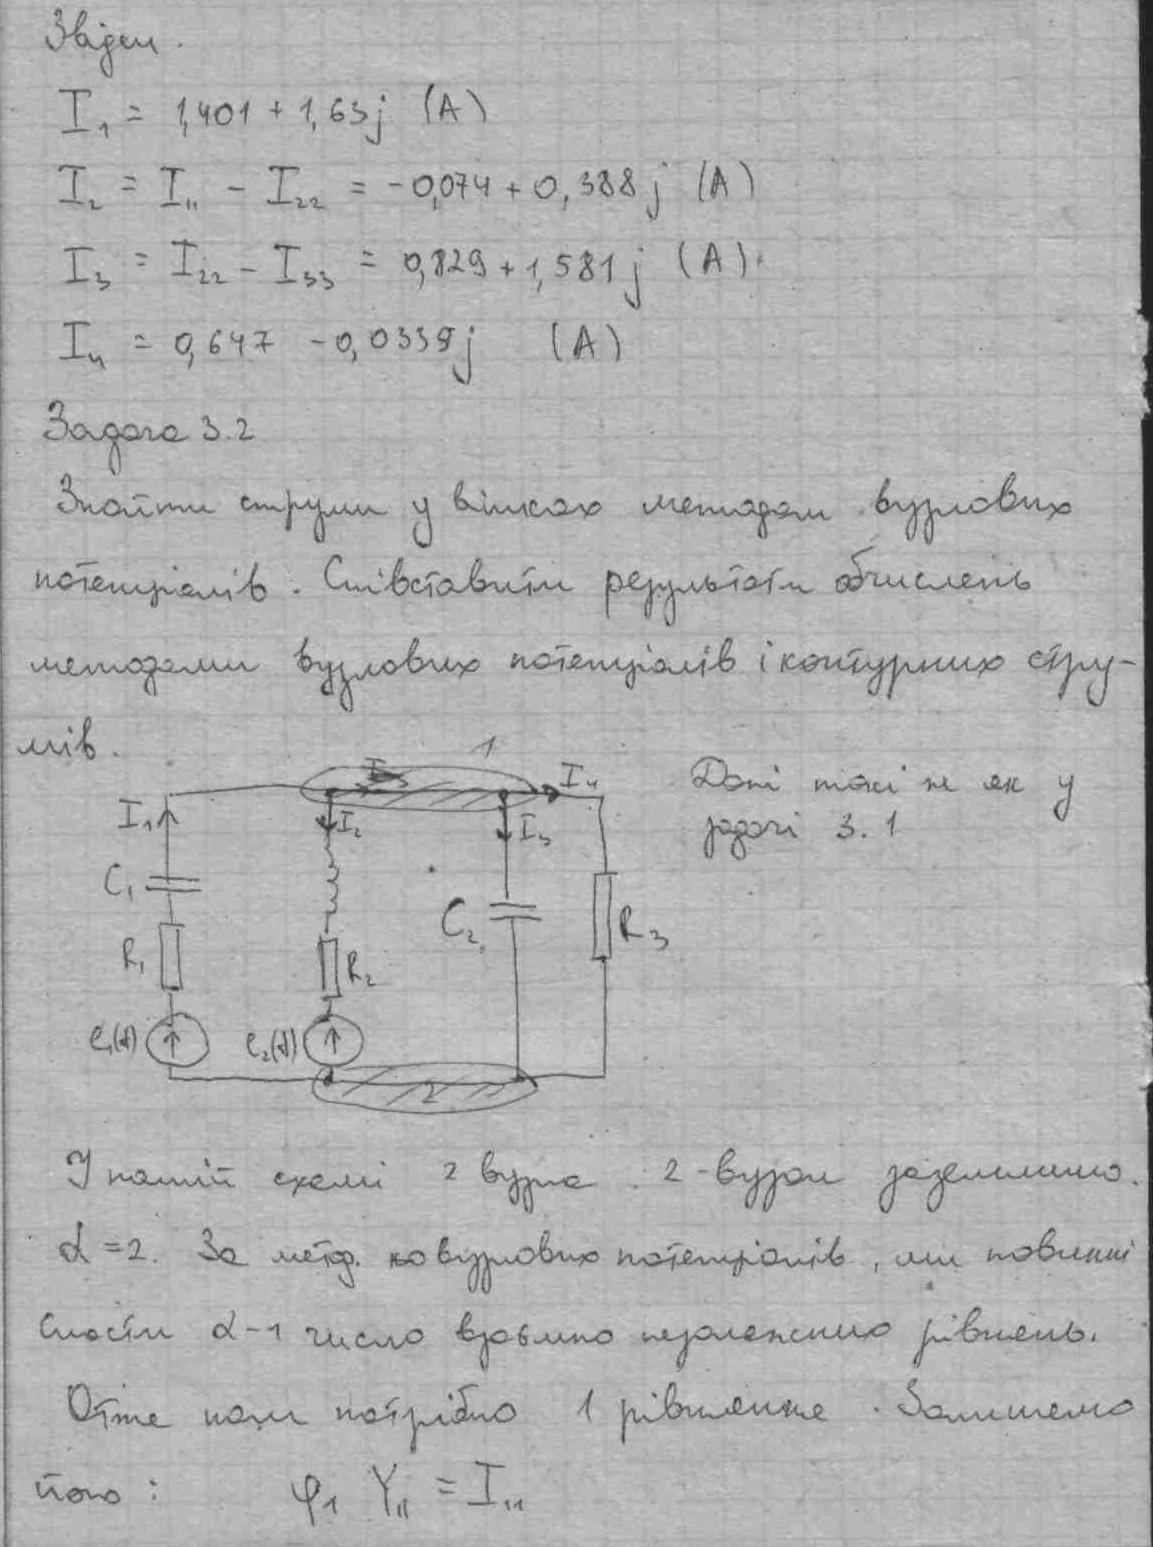 Звідси.
I₁ = 1,401 + 1,63j (A)
I₂ = I₁₁ - I₂₂ = -0,074 + 0,388j (A)
I₃ = I₂₂ - I₃₃ = 0,829 + 1,581j (A).
I₄ = 0,647 - 0,0339j (A)
Задача 3.2
Знайти струми у вітках методом вузлових
потенціалів. Співставити результати обчислень
методами вузлових потенціалів і контурних стру-
мів.
1
I₁
I₂
I₃
I₄
C₁
C₂
R₁
R₂
R₃
e₁(t)
e₂(t)
2
Дані такі ж як у
задачі 3.1
У нашій схемі 2 вузла. 2-вузол заземлимо.
α = 2. За метод. вузлових потенціалів, ми повинні
скласти α-1 число взаємно незалежних рівнень.
Отже нам потрібно 1 рівняння. Запишемо
його: φ₁ Y₁₁ = I₁₁